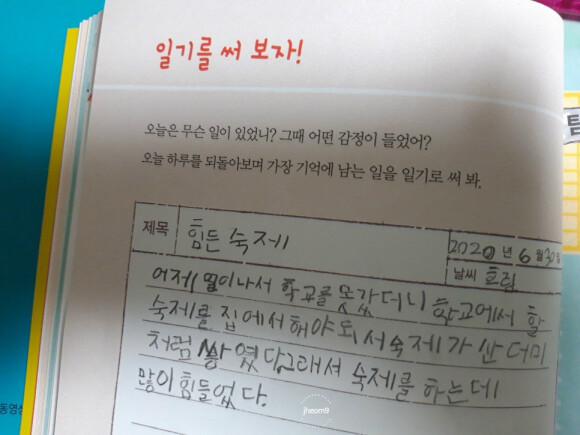 일기를 써 보자!
오늘은 무슨 일이 있었니? 그때 어떤 감정이 들었어?
오늘 하루를 되돌아보며 가장 기억에 남는 일을 일기로 써 봐.
제목 힘든 숙제 2020 년 6 월 30 일
날씨 흐림
어제 열이나서 학교를 못갔더니 학교에서 할
숙제를 집에서 해야 되서 숙제가 산더미
처럼 쌓였다 그래서 숙제를 하는데
많이 힘들었다.
jheom9
동영상
팀